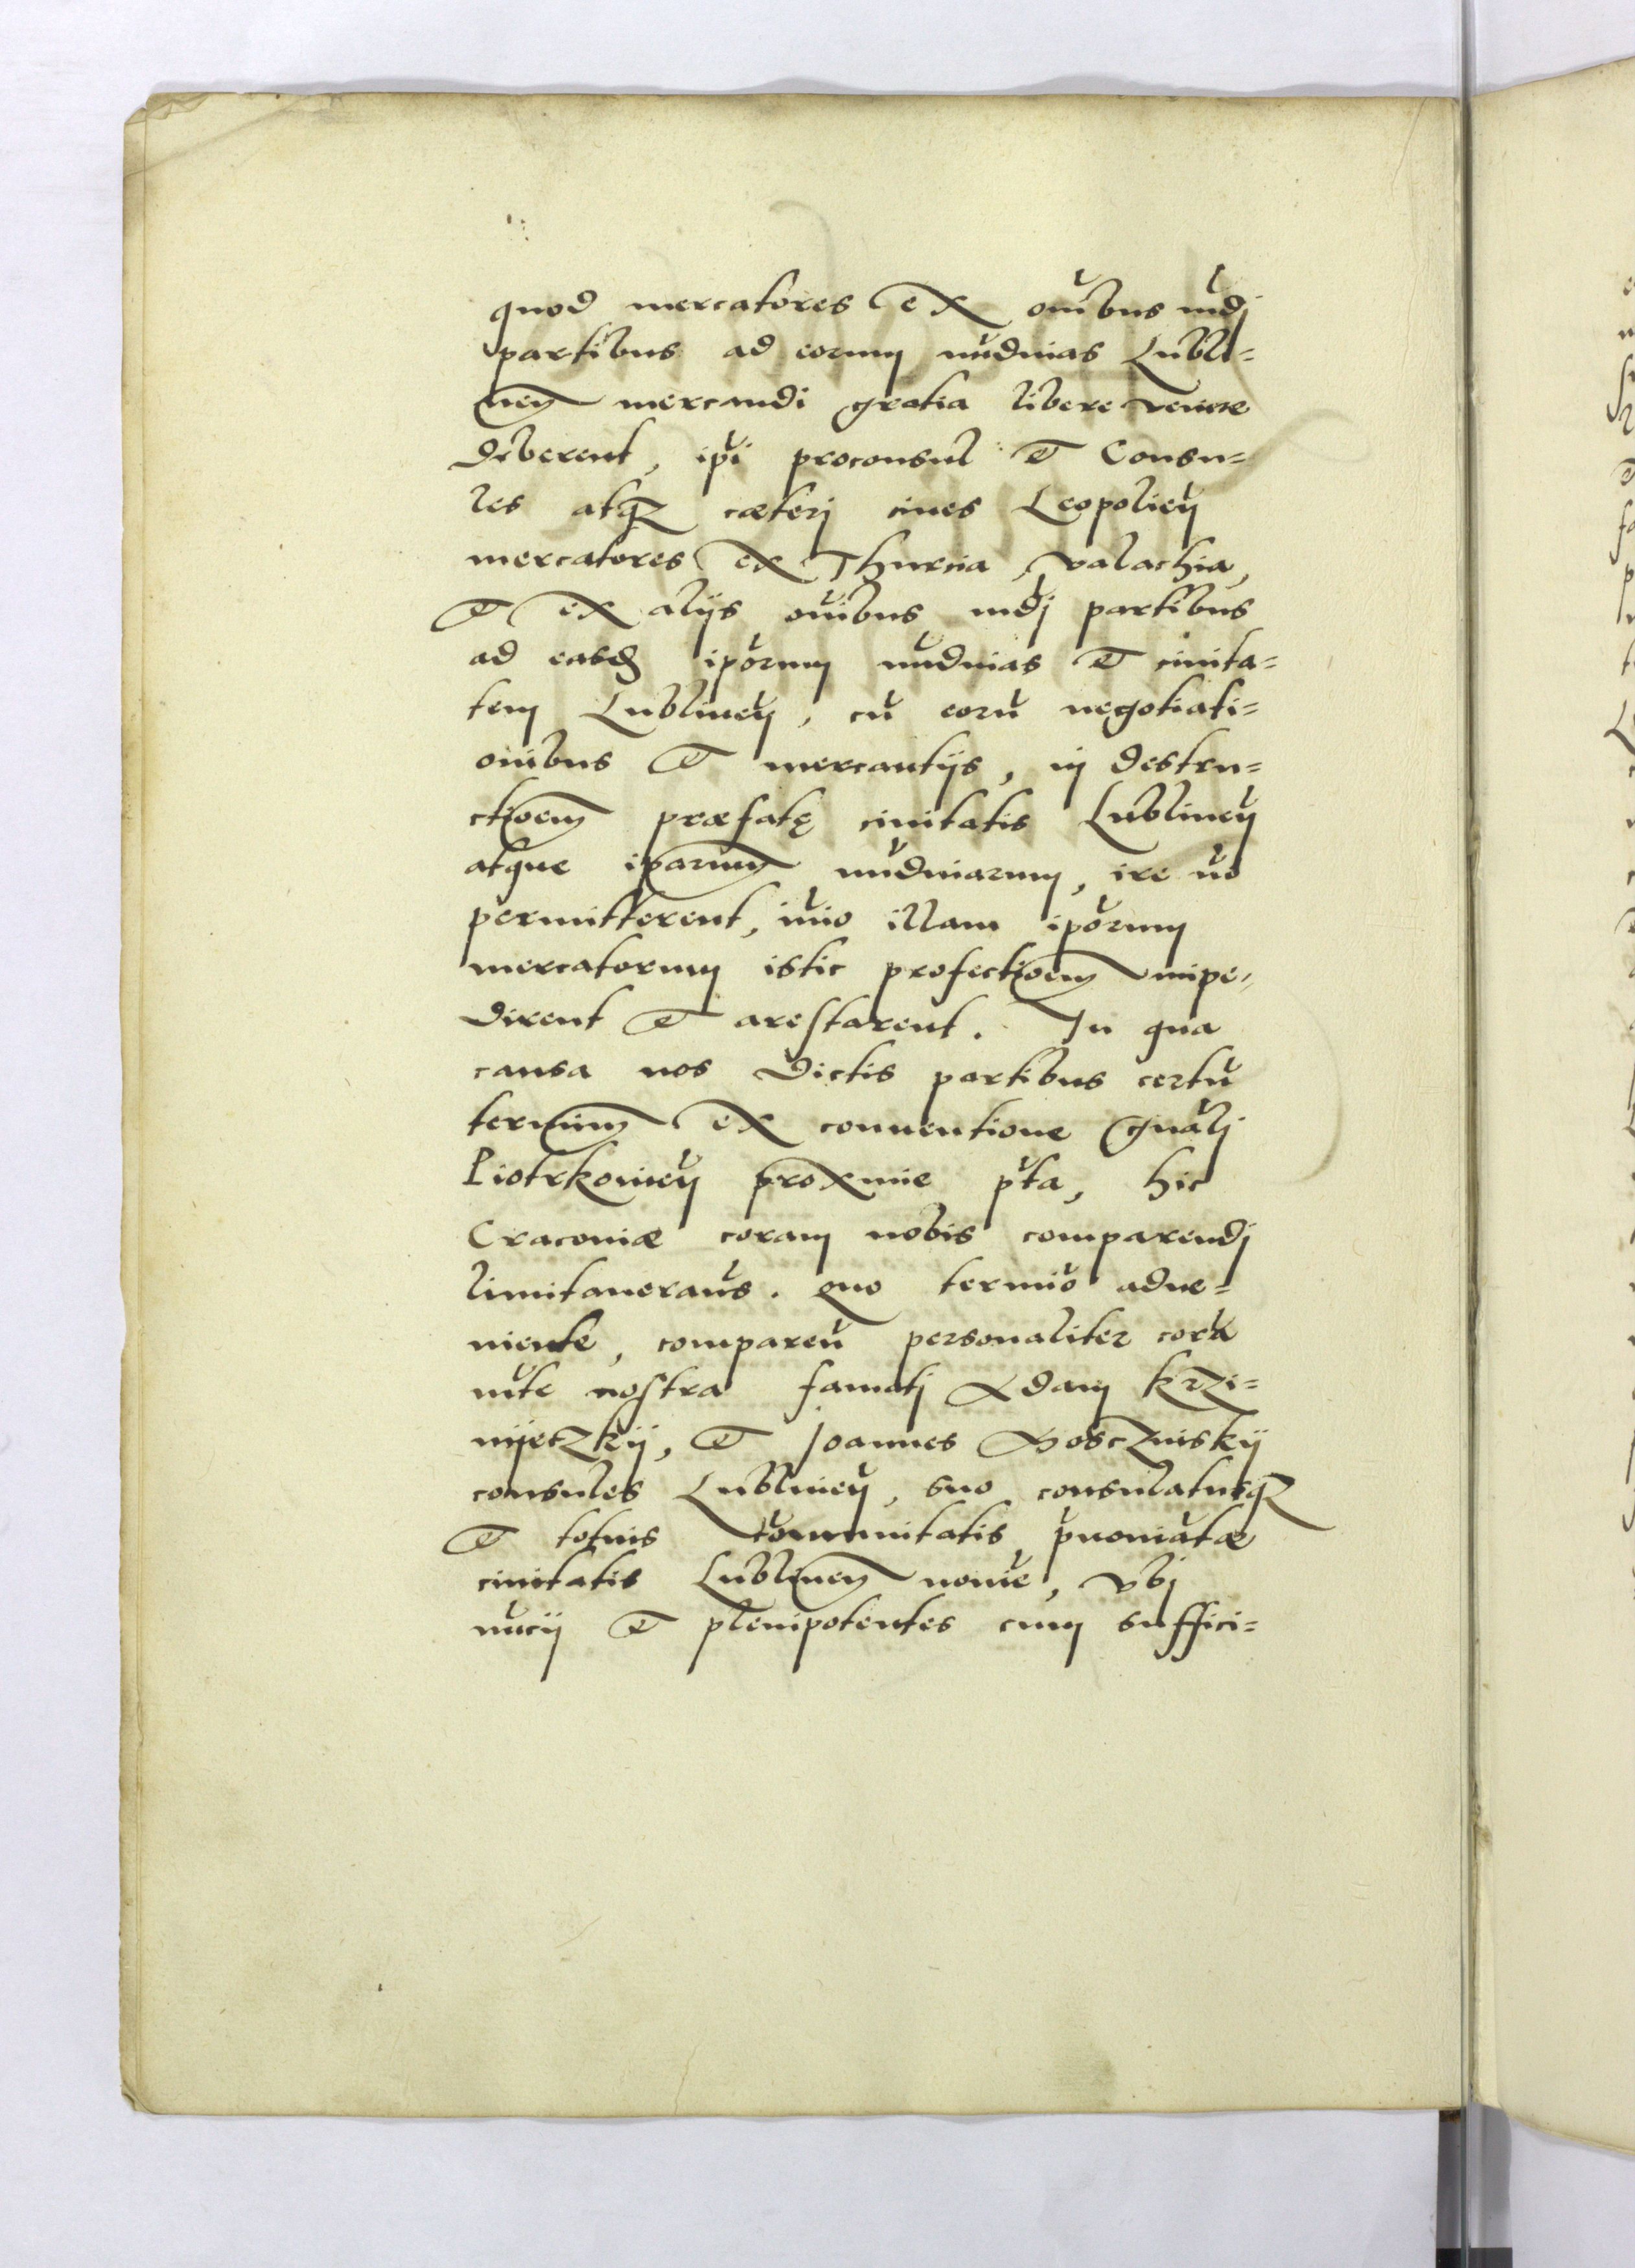 quod mercatores ex oı̃bus mũdj
partibus ad eorum nũdinas Lubli=
neñ mercandi gratia libere venire
deberent, ip̃i proconsul et Consu=
les atq3 cæterj ciues Leopolieñ
mercatores ex Thurcia, valachia,
et ex alijs oı̃bus mũdj partibus
ad easdẽ ip̃orum nũdinas et ciuita=
tem Lublineñ, cũ eorũ negotiati=
onibus et mercantijs, in destru=
ctioem præfatę ciuitatis Lublineñ
atque iparum nũdinarum, ire nõ
permitterent, im̃o illam ip̃orum
mercatorum istic profectioem impe=
dirent et arestarent. In qua
causa nos dictis partibus certũ
terminũ ex conuentione gñalj
Piotrkouieñ proxime p̃ta, hic
Cracouiæ coram nobis comparendj
limitaueram̃s. Quo termiõ adue=
niente, compareñ personaliter corã
m̃te nostra famatj Adam krzi=
nijeczkij, et Joannes Gosczniskij
consules Lublineñ, suo consulatusq3
et totius com̃unitatis, p̃nominatæ
ciuitatis Lublineñ noĩe, vbj
nũcij et plenipotentes cum suffici=